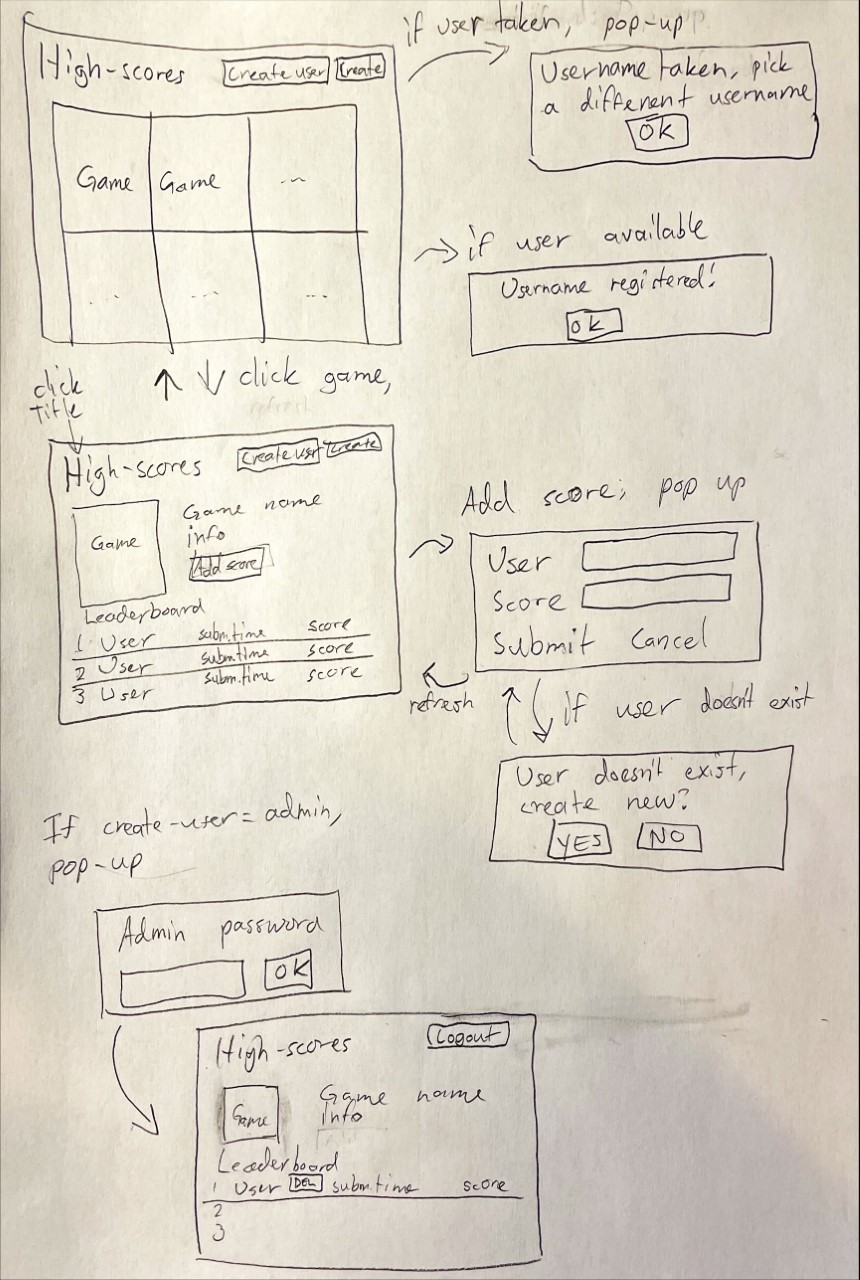 if user taken, pop-up
High-scores Create user Create
Username taken, pick
a different username
OK
Game Game ...
... ... ...
if user available
Username registered!
OK
click
title
click game,
High-scores Create user Create
Game
Game name
info
Add score
Leaderboard
1 User subm.time score
2 User subm.time score
3 User subm.time score
Add score; pop up
User
Score
Submit Cancel
refresh
if user doesn't exist
User doesn't exist,
create new?
YES NO
If create-user = admin,
pop-up
Admin password
OK
High-scores Logout
Game
Game name
info
Leaderboard
1 User DEL subm.time score
2
3